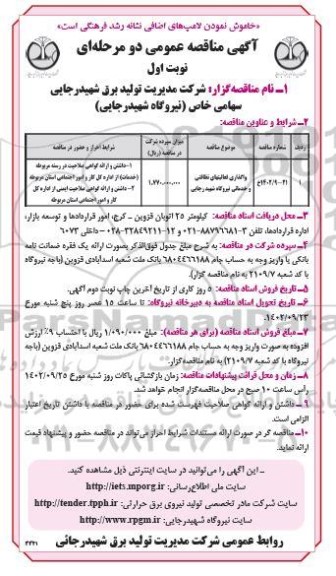 «خاموش نمودن لامپ‌های اضافی نشانه رشد فرهنگی است»
آگهی مناقصه عمومی دو مرحله‌ای
نوبت اول
۱ـ نام مناقصه‌گزار: شرکت مدیریت تولید برق شهیدرجایی
سهامی خاص (نیروگاه شهیدرجایی)
۲ـ شرایط و عناوین مناقصه:
ردیف شماره مناقصه موضوع مناقصه میزان سپرده شرکت در مناقصه (ریال) شرایط احراز و حضور در مناقصه
۱ ۱۴۰۲/۹-۲۱ع واگذاری فعالیتهای نظافتی و خدماتی نیروگاه شهید رجایی ۱.۷۷۰.۰۰۰.۰۰۰ ۱-داشتن و ارائه گواهی صلاحیت در رسته مربوطه (خدمات) از اداره کل کار و امور اجتماعی استان مربوطه
۲- داشتن و ارائه گواهی صلاحیت ایمنی از اداره کل کار و امور اجتماعی استان مربوطه
۳ـ محل دریافت اسناد مناقصه: کیلومتر ۲۵ اتوبان قزوین ـ کرج، امور قراردادها و توسعه بازار،
اداره قراردادها، تلفن ۳-۸۸۷۹۶۶۸۱-۰۲۱ و ۱۲-۳۲۸۴۹۲۱۱-۰۲۸ - داخلی ۶۰۷۳
۴ـ سپرده شرکت در مناقصه: به شرح مبلغ جدول فوق‌الذکر بصورت ارائه یک فقره ضمانت نامه
بانکی یا واریز وجه به حساب جام ۶۸۰۴۴۶۶۱۸۸ بانک ملت شعبه اسدآبادی قزوین (باجه نیروگاه
با کد شعبه ۲۱۰۹/۷ به نام مناقصه گزار).
۵ـ تاریخ فروش اسناد مناقصه: ۵ روز کاری از تاریخ آخرین چاپ نوبت دوم آگهی.
۶ـ تاریخ تحویل اسناد مناقصه به دبیرخانه نیروگاه: تا ساعت ۱۵ عصر روز پنج شنبه مورخ
۱۴۰۲/۰۹/۲۳.
۷ـ مبلغ فروش اسناد مناقصه (برای هر مناقصه): مبلغ ۱/۰۹۰/۰۰۰ ریال با احتساب ۹٪ ارزش
افزوده به صورت واریز وجه به حساب جام ۶۸۰۴۴۶۶۱۸۸ بانک ملت شعبه اسدآبادی قزوین (باجه
نیروگاه با کد شعبه ۲۱۰۹/۷) به نام مناقصه‌گزار.
۸ـ زمان و محل قرائت پیشنهادات مناقصه: زمان بازگشائی پاکات روز شنبه مورخ ۱۴۰۲/۰۹/۲۵
راس ساعت ۱۰ صبح در محل مناقصه‌گزار انجام خواهد شد.
۹ـ داشتن و ارائه گواهی صلاحیت فهرست شده برای حضور در مناقصه با داشتن تاریخ اعتبار
الزامی است.
۱۰ـ مناقصه گر در صورت ارائه مستندات شرایط احراز می‌تواند در مناقصه حضور و پیشنهاد قیمت
ارائه نماید.
ـ این آگهی را می‌توانید در سایت اینترنتی ذیل مشاهده کنید.
سایت ملی اطلاع‌رسانی: http://iets.mporg.ir
سایت شرکت مادر تخصصی تولید نیروی برق حرارتی: http://tender.tpph.ir
سایت نیروگاه شهیدرجایی: http://www.rpgm.ir
روابط عمومی شرکت مدیریت تولید برق شهیدرجائی